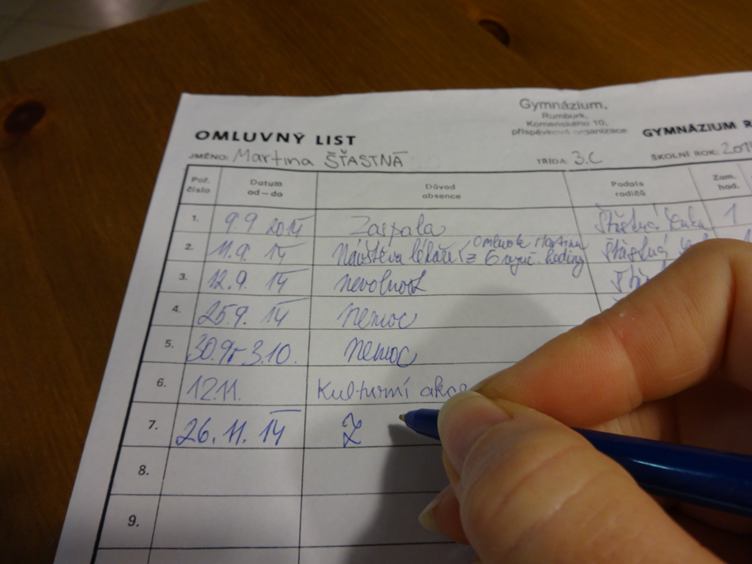 Gymnázium,
Rumburk,
Komenského 10,
příspěvková organizace
OMLUVNÝ LIST GYMNÁZIUM R
JMÉNO: Martina ŠŤASTNÁ TŘÍDA: 3.C ŠKOLNÍ ROK: 201
Poř. číslo Datum od – do Důvod absence Podpis rodičů Zam. hod.
1. 9.9 2014 Zaspala 1
2. 11.9. 14 Návštěva lékaře Omluvte Martinu
z 6 vyuč. hodiny
3. 12.9. 14 nevolnost
4. 25.9. 14 nemoc
5. 30.9.-3.10. nemoc
6. 12.11. Kulturní akce
7. 26.11.14 Z
8.
9.